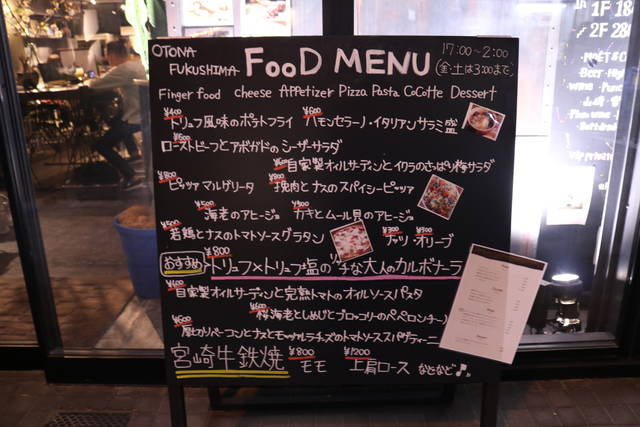 OTONA FUKUSHIMA FooD MENU 17:00~2:00
(金・土は3:00まで)
Finger food cheese Appetizer Pizza Pasta CoCotte Dessert
¥400 トリュフ風味のポテトフライ ¥600 ハモンセラーノ・イタリアンサラミ盛
¥600 ローストビーフとアボガドのシーザーサラダ
自家製オイルサーディンとイクラのさっぱり梅サラダ
¥800 ピッツァマルゲリータ ¥800 挽肉とナスのスパイシーピッツァ
¥500 海老のアヒージョ カキとムール貝のアヒージョ
¥500 若鶏とナスのトマトソースグラタン ¥300 ナッツ・¥300 オリーブ
おすすめ ¥800 トリュフ×トリュフ塩のリッチな大人のカルボナーラ
¥600 自家製オイルサーディンと完熟トマトのオイルソースパスタ
¥600 桜海老としめじとブロッコリのペペロンチーノ
¥600 厚切りベーコンとナスとモッツァレラチーズのトマトソーススパゲティーニ
宮崎牛鉄焼 ¥800 モモ ¥1200 上肩ロース などなど♪
1F 180
2F 280